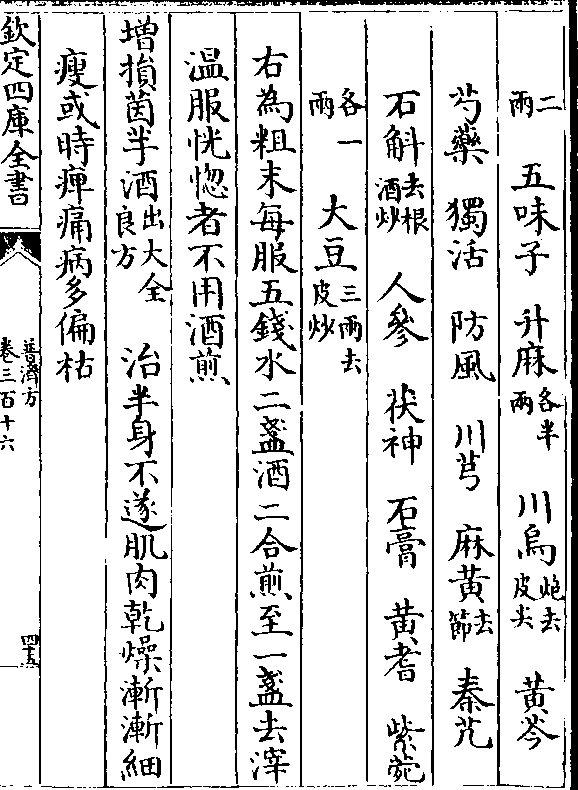 二兩 五味子 升麻各半兩 川烏炮去皮尖 黄芩
芍藥 獨活 防風 川芎 麻黄去節 秦艽
石斛去根酒炒 人參 茯神 石膏 黄耆 紫菀
各一兩 大豆三兩去皮炒
右為粗末每服五錢水二盞酒二合煎至一盞去滓
温服恍惚者不用酒煎
增損茵芋酒出大全良方 治半身不遂肌肉乾燥漸漸細
瘦或時痺痛病多偏枯
欽定四庫全書 普濟方卷三百十六 四十五